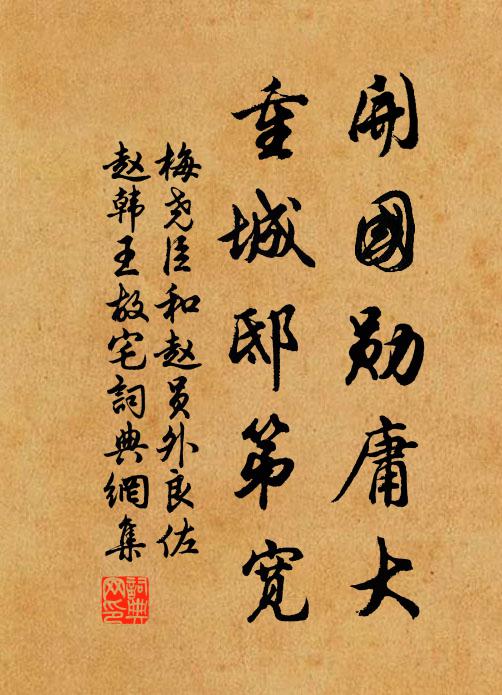 開國勛庸大
重城邸第寬
梅尧臣和赵员外良佐
赵韩王故宅詞典網集
詞典
网印